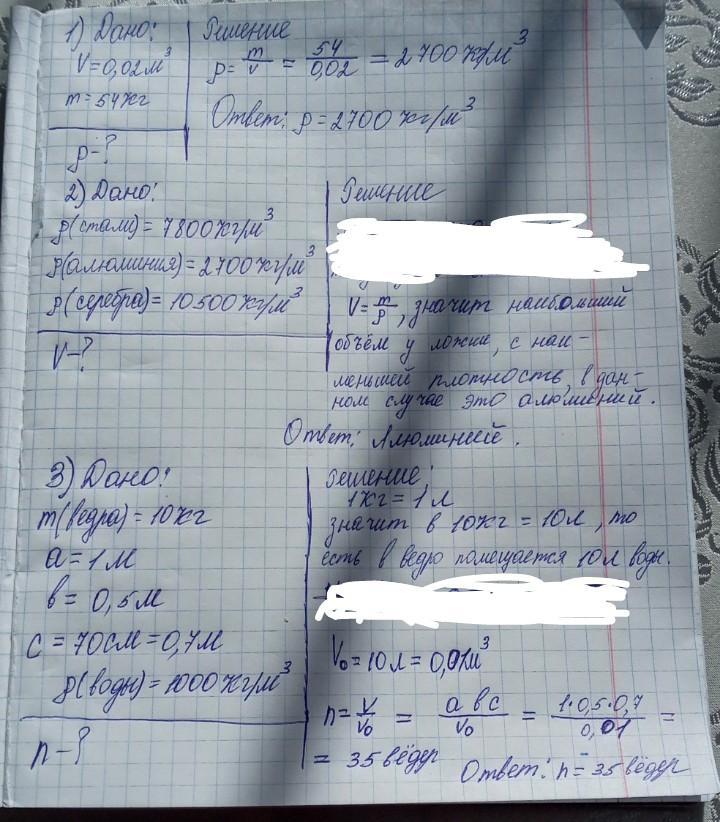 1) Дано:
V=0,02 м³
m=54кг
ρ-?
Решение
ρ= m/V = 54/0,02 = 2700 кг/м³
Ответ: ρ=2700 кг/м³
2) Дано:
ρ(стали)= 7800кг/м³
ρ(алюминия)=2700кг/м³
ρ(серебра)=10500кг/м³
V-?
Решение
V= m/ρ, значит наибольший
объём у ложки, с наи-
меньшей плотность, в дан-
ном случае это алюминий.
Ответ: Алюминий.
3) Дано:
m(ведра)=10кг
a=1м
в= 0,5м
c=70см=0,7м
ρ(воды)=1000кг/м³
n-?
Решение:
1кг=1л
значит в 10кг=10л, то
есть в ведро помещается 10л воды.
V₀=10л=0,01м³
n= V/V₀ = a в c/V₀ = 1·0,5·0,7/0,01 =
= 35 вёдер
Ответ: n=35 вёдер